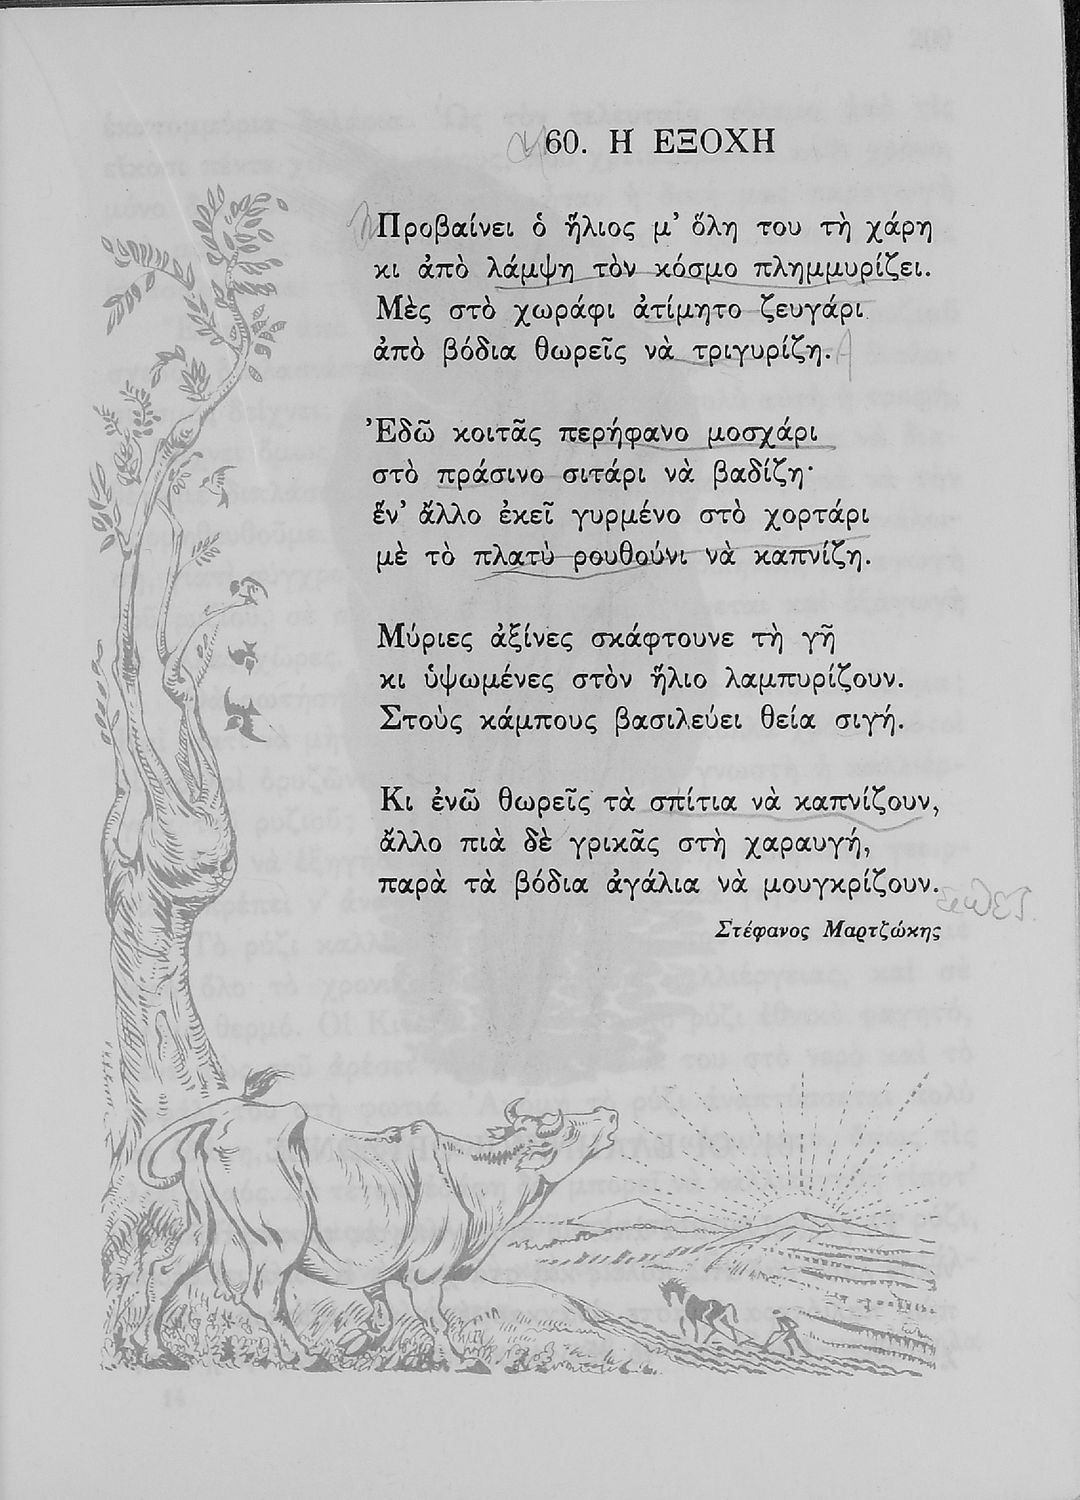 60. Η ΕΞΟΧΗ
Προβαίνει ὁ ἥλιος μ' ὅλη του τὴ χάρη
κι ἀπὸ λάμψη τὸν κόσμο πλημμυρίζει.
Μὲς στὸ χωράφι ἀτίμητο ζευγάρι
ἀπὸ βόδια θωρεῖς νὰ τριγυρίζη.
Ἐδῶ κοιτᾶς περήφανο μοσχάρι
στὸ πράσινο σιτάρι νὰ βαδίζη·
ἕν' ἄλλο ἐκεῖ γυρμένο στὸ χορτάρι
μὲ τὸ πλατὺ ρουθούνι νὰ καπνίζη.
Μύριες ἀξίνες σκάφτουνε τὴ γῆ
κι ὑψωμένες στὸν ἥλιο λαμπυρίζουν.
Στοὺς κάμπους βασιλεύει θεία σιγή.
Κι ἐνῶ θωρεῖς τὰ σπίτια νὰ καπνίζουν,
ἄλλο πιὰ δὲ γρικᾶς στὴ χαραυγή,
παρὰ τὰ βόδια ἀγάλια νὰ μουγκρίζουν.
Στέφανος Μαρτζώκης